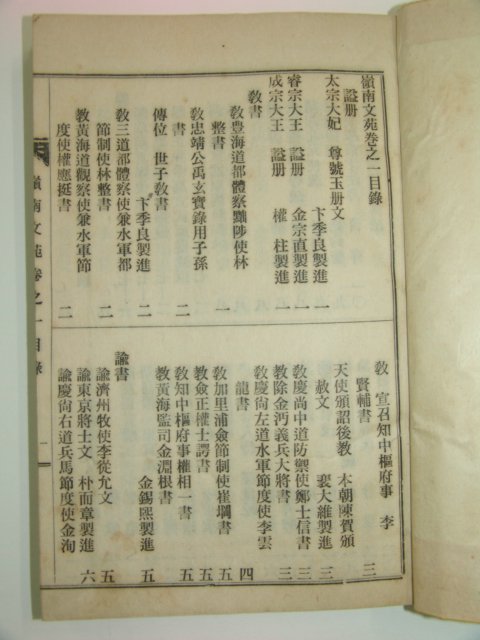 嶺南文苑卷之一目錄
諡册
太宗大妃 尊號玉册文
卞季良製進 一
睿宗大王 諡册 金宗直製進 一
成宗大王 諡册 權 柱製進 一
敎書
敎豊海道都體察黜陟使林
整書 一
敎忠靖公禹玄寶錄用子孫
書 二
傳位 世子敎書
卞季良製進 二
敎三道都體察使兼水軍都
節制使林整書 二
敎黃海道觀察使兼水軍節
度使權應挺書 二
敎 宣召知中樞府事 李
賢輔書 三
天使頒詔後敎 本朝陳賀頒
赦文 裵大維製進 三
敎慶尙中道防禦使鄭士信書 三
敎除金沔義兵大將書 三
敎慶尙左道水軍節度使李雲
龍書 四
敎加里浦僉節制使崔堈書 五
敎僉正權士諤書 五
敎知中樞府事權相一書 五
敎黃海監司金淵根書
金錫熙製進 五
諭書
諭濟州牧使李從允文 五
諭東京將士文 朴而章製進 五
諭慶尙右道兵馬節度使金洵 六
嶺南文苑卷之一目錄 一